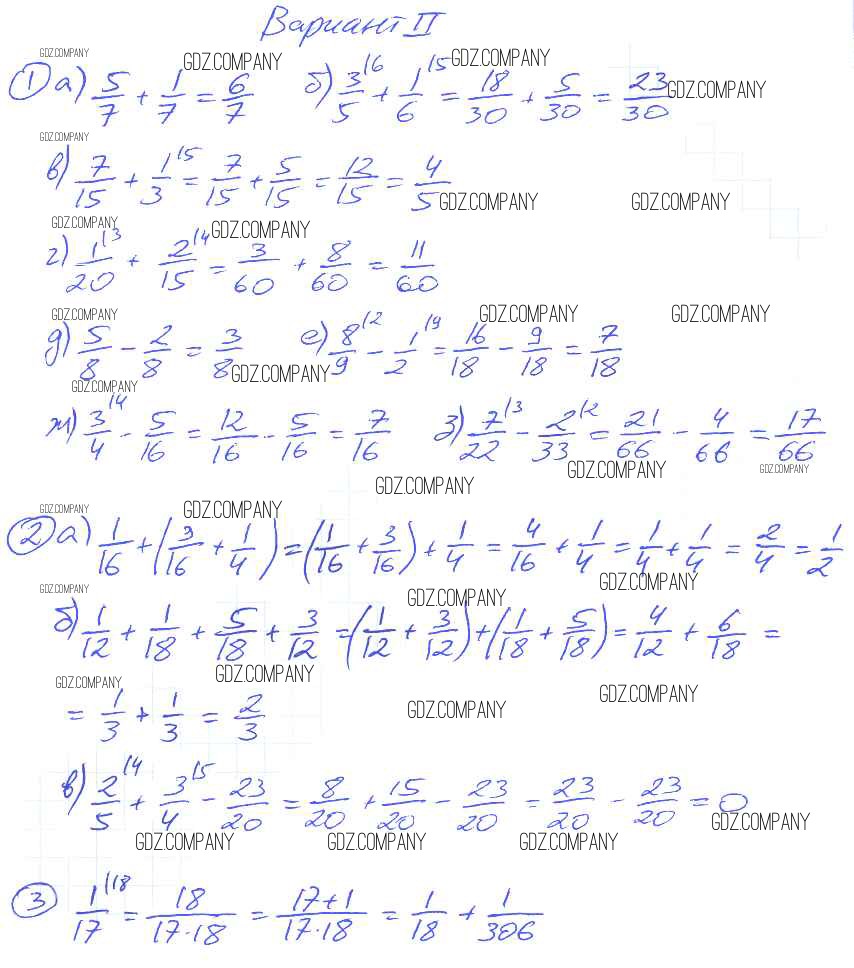 Вариант II
GDZ.COMPANY GDZ.COMPANY GDZ.COMPANY
① а) 5/7 + 1/7 = 6/7 б) 3/5^(6 + 1/6^(5 = 18/30 + 5/30 = 23/30 GDZ.COMPANY
GDZ.COMPANY
в) 7/15 + 1/3^(5 = 7/15 + 5/15 = 12/15 = 4/5 GDZ.COMPANY GDZ.COMPANY
GDZ.COMPANY GDZ.COMPANY
г) 1/20^(3 + 2/15^(4 = 3/60 + 8/60 = 11/60
GDZ.COMPANY GDZ.COMPANY GDZ.COMPANY
д) 5/8 - 2/8 = 3/8 е) 8/9^(2 - 1/2^(9 = 16/18 - 9/18 = 7/18
GDZ.COMPANY GDZ.COMPANY
ж) 3/4^(4 - 5/16 = 12/16 - 5/16 = 7/16 з) 7/22^(3 - 2/33^(2 = 21/66 - 4/66 = 17/66
GDZ.COMPANY GDZ.COMPANY
GDZ.COMPANY
GDZ.COMPANY GDZ.COMPANY
② а) 1/16 + (3/16 + 1/4) = (1/16 + 3/16) + 1/4 = 4/16 + 1/4 = 1/4 + 1/4 = 2/4 = 1/2
GDZ.COMPANY GDZ.COMPANY GDZ.COMPANY
б) 1/12 + 1/18 + 5/18 + 3/12 = (1/12 + 3/12) + (1/18 + 5/18) = 4/12 + 6/18 =
GDZ.COMPANY GDZ.COMPANY GDZ.COMPANY GDZ.COMPANY
= 1/3 + 1/3 = 2/3
в) 2/5^(4 + 3/4^(5 - 23/20 = 8/20 + 15/20 - 23/20 = 23/20 - 23/20 = 0
GDZ.COMPANY GDZ.COMPANY GDZ.COMPANY GDZ.COMPANY
③ 1/17^(18 = 18/17·18 = 17+1/17·18 = 1/18 + 1/306